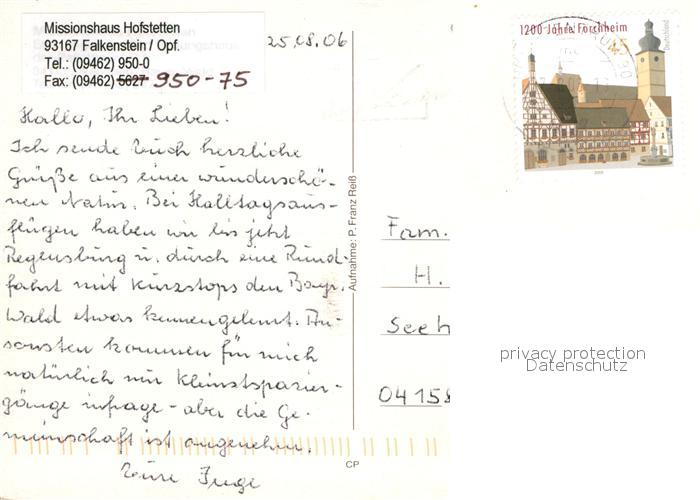 Missionshaus Hofstetten
93167 Falkenstein / Opf.
Tel.: (09462) 950-0
Fax: (09462) 5627 950-75
25.08.06
1200 Jahre Forchheim
45
Deutschland
Hallo, Ihr Lieben!
Ich sende Euch herzliche
Grüße aus einer wunderschö-
nen Natur. Bei Halbtagsaus-
flügen haben wir bis jetzt
Regensburg u. durch eine Rund-
fahrt mit Kurzstops den Bayr.
Wald etwas kennengelernt. An-
sonsten kommen für mich
natürlich nur Kleinstspazier-
gänge infrage - aber die Ge-
meinschaft ist angenehm.
Eure Inge
Aufnahme: P. Franz Reiß
CP
Fam.
H.
Seeh
04158
privacy protection
Datenschutz